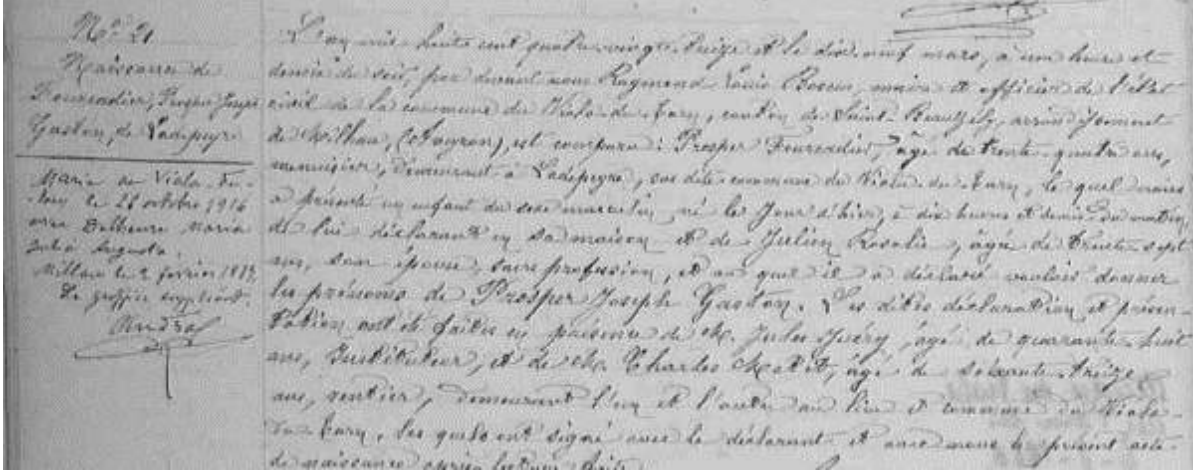 N° 21
Naissance de
Fourcadier, Prosper Joseph
Gaston, de Ladepeyre
Marié au Viala-du-
Tarn le 28 octobre 1916
avec Maria
Julie Augusta
Millau le 2 février 1917
Le greffier suppléant
L'an mil huit cent quatre-vingt-treize et le dix-neuf mars, à une heure et
demie du soir, par devant nous Raymond Louis maire et officier de l'état
civil de la commune du Viala-du-Tarn, canton de Saint-Beauzély, arrondissement
de Milhau, (Aveyron), est comparu : Prosper Fourcadier, âgé de trente-quatre ans,
menuisier, demeurant à Ladepeyre, sus dite commune du Viala-du-Tarn, le quel nous
a présenté un enfant du sexe masculin, né le jour d'hier, à dix heures et demie du matin,
de lui déclarant en sa maison et de Julien Rosalie, âgée de trente-sept
ans, son épouse, sans profession, et au quel il a déclaré vouloir donner
les prénoms de Prosper Joseph Gaston. Les dites déclaration et présen-
tation ont été faites en présence de M. Jules âgé de quarante-huit
ans, Instituteur, et de M. Charles âgé de soixante-treize
ans, rentier, demeurant l'un et l'autre au lieu et commune du Viala-
du-Tarn, les quels ont signé avec le déclarant et avec nous le présent acte
de naissance après lecture faite